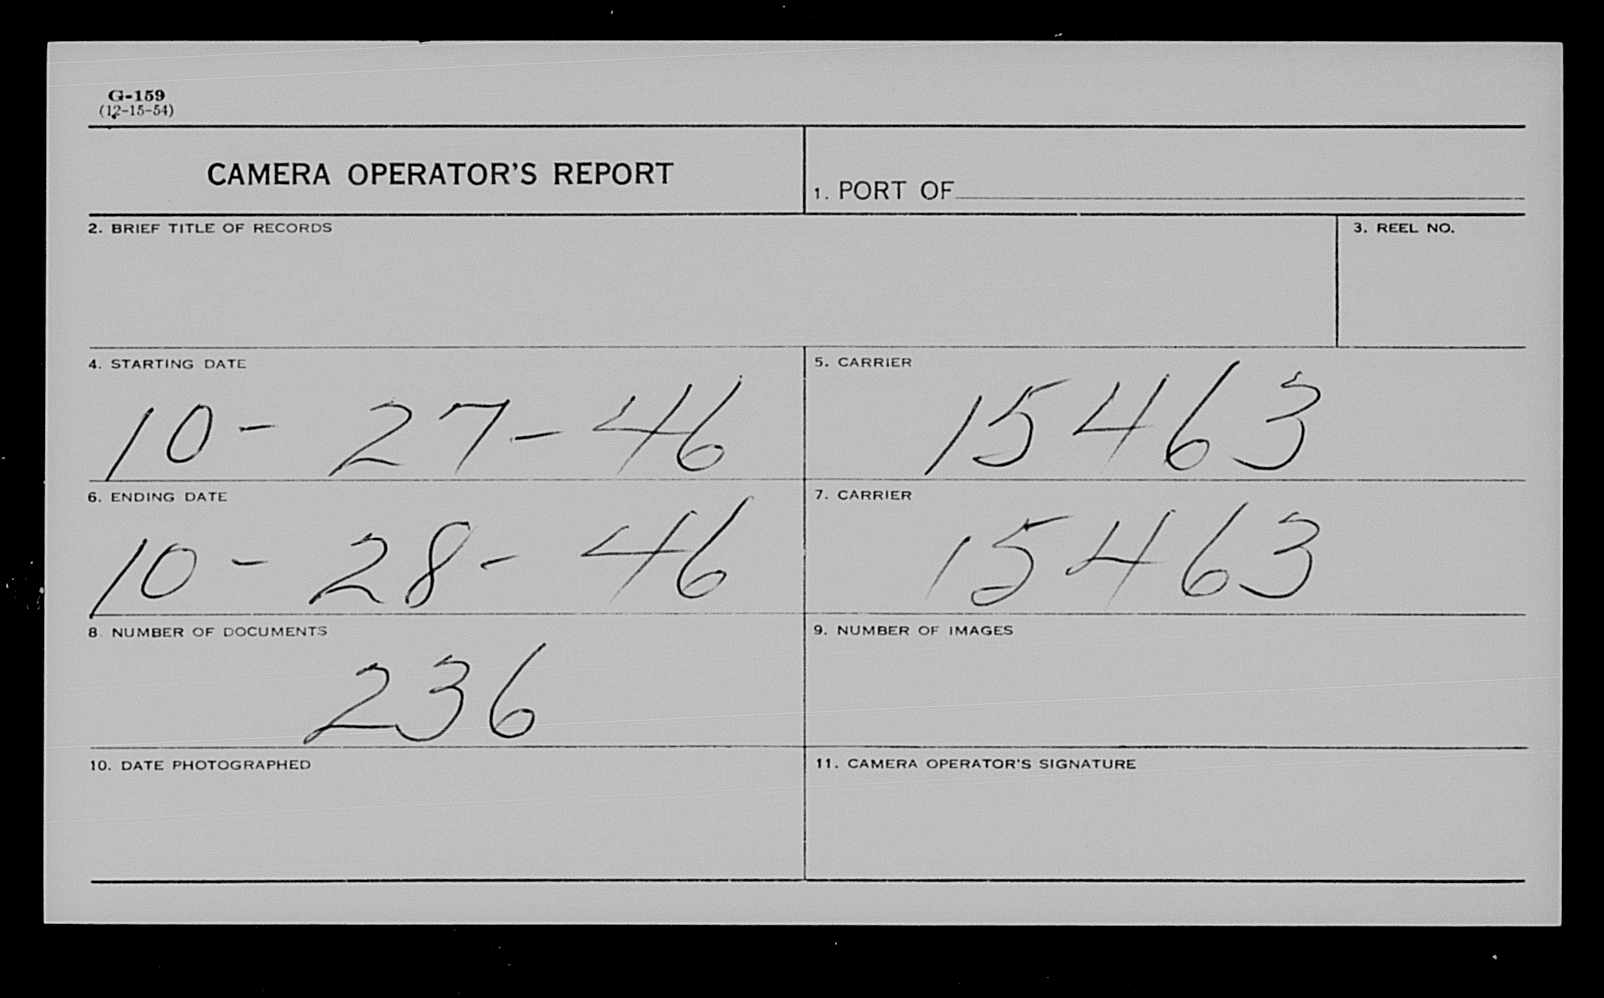 G-159
(12-15-54)
CAMERA OPERATOR'S REPORT
1. PORT OF
2. BRIEF TITLE OF RECORDS
3. REEL NO.
4. STARTING DATE
10- 27-46
5. CARRIER
15463
6. ENDING DATE
10- 28- 46
7. CARRIER
15463
8. NUMBER OF DOCUMENTS
236
9. NUMBER OF IMAGES
10. DATE PHOTOGRAPHED
11. CAMERA OPERATOR'S SIGNATURE